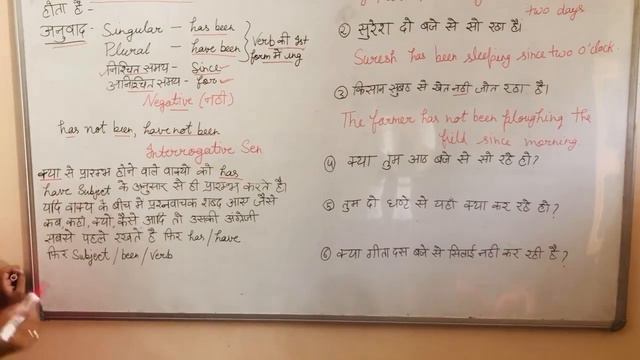 होता है -
अनुवाद - Singular - has been
Plural - have been
Verb की Ist
form में ing
निश्चित समय - Since
अनिश्चित समय - for
Negative (नही)
has not been, have not been
Interrogative Sen
क्या से प्रारम्भ होने वाले वाक्यो को has
have Subject के अनुसार से ही प्रारम्भ करते है।
यदि वाक्य के बीच मे प्रश्नवाचक शब्द आए जैसे
कब, कहाँ, क्यो, कैसे आदि तो उसकी अंग्रेजी
सबसे पहले रखते है फिर has/have
फिर Subject/been/verb
two days
② सुरेश दो बजे से सो रहा है।
Suresh has been sleeping since two o'clock.
③ किसान सुबह से खेत नही जोत रहा है।
The farmer has not been ploughing the
field since morning.
④ क्या तुम आठ बजे से सो रहे हो?
⑤ तुम दो घण्टे से यहाँ क्या कर रहे हो?
⑥ क्या गीता दस बजे से सिलाई नही कर रही है?